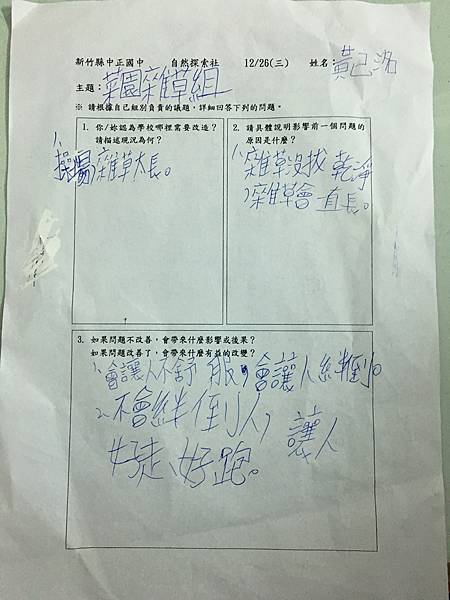 新竹縣中正國中 自然探索社 12/26(三) 姓名：黃己洺
主題：菜園雜草組
※ 請根據自己組別負責的議題，詳細回答下列的問題。
1. 你/妳認為學校哪裡需要改造？
請描述現況為何？
1、操場雜草太長。
2. 請具體說明影響前一個問題的
原因是什麼？
1、雜草沒拔乾淨
，雜草會一直長。
3. 如果問題不改善，會帶來什麼影響或後果？
如果問題改善了，會帶來什麼有益的改變？
1、會讓人不舒服，會讓人絆倒。
2、不會絆倒人，讓人
好走、好跑。